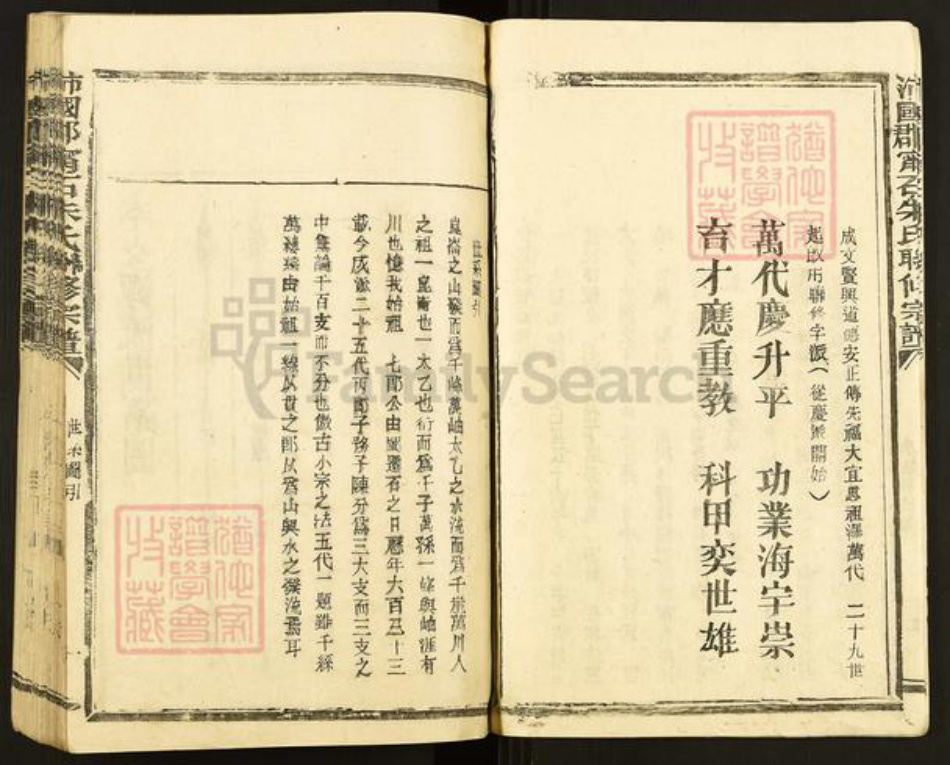 沛國郡甯石朱氏聯修宗譜
成文賢興道德安正傳先福大宜恩祖澤萬代 二十九世
起改用聯修字派(從慶派開始)
萬代慶升平 功業海宇崇
育才應重教 科甲奕世雄
猶他家譜學會收藏
世系圖引
崑崙之山發而爲千峰萬岫太乙之水流而爲千崖萬川人
之祖一崑崙也一太乙也衍而爲千子萬孫一峰與岫涯有
川也憶我始祖 七郎公由閩遷石之日歷年六百五十三
載今成派二十五代丙郎子務子陳分爲三大支而三支之
中集論千百支而不分也倣古小宗之法五代一題雖千孫
萬總由始祖一線以貫之郎以爲山與水之發流焉耳
猶他家譜學會收藏
沛國郡甯石朱氏聯修宗譜
世系圖引
FamilySearch